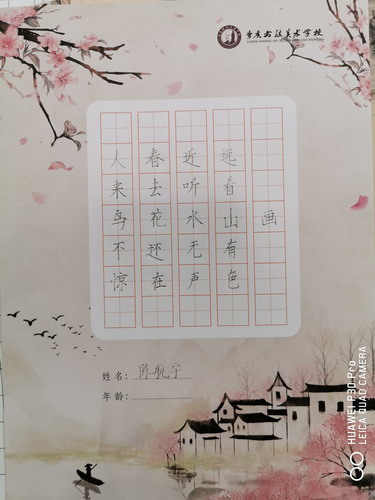 画
远看山有色
近听水无声
春去花还在
人来鸟不惊
姓名：陈航宇
年龄：
HUAWEI P30 Pro
LEICA QUAD CAMERA